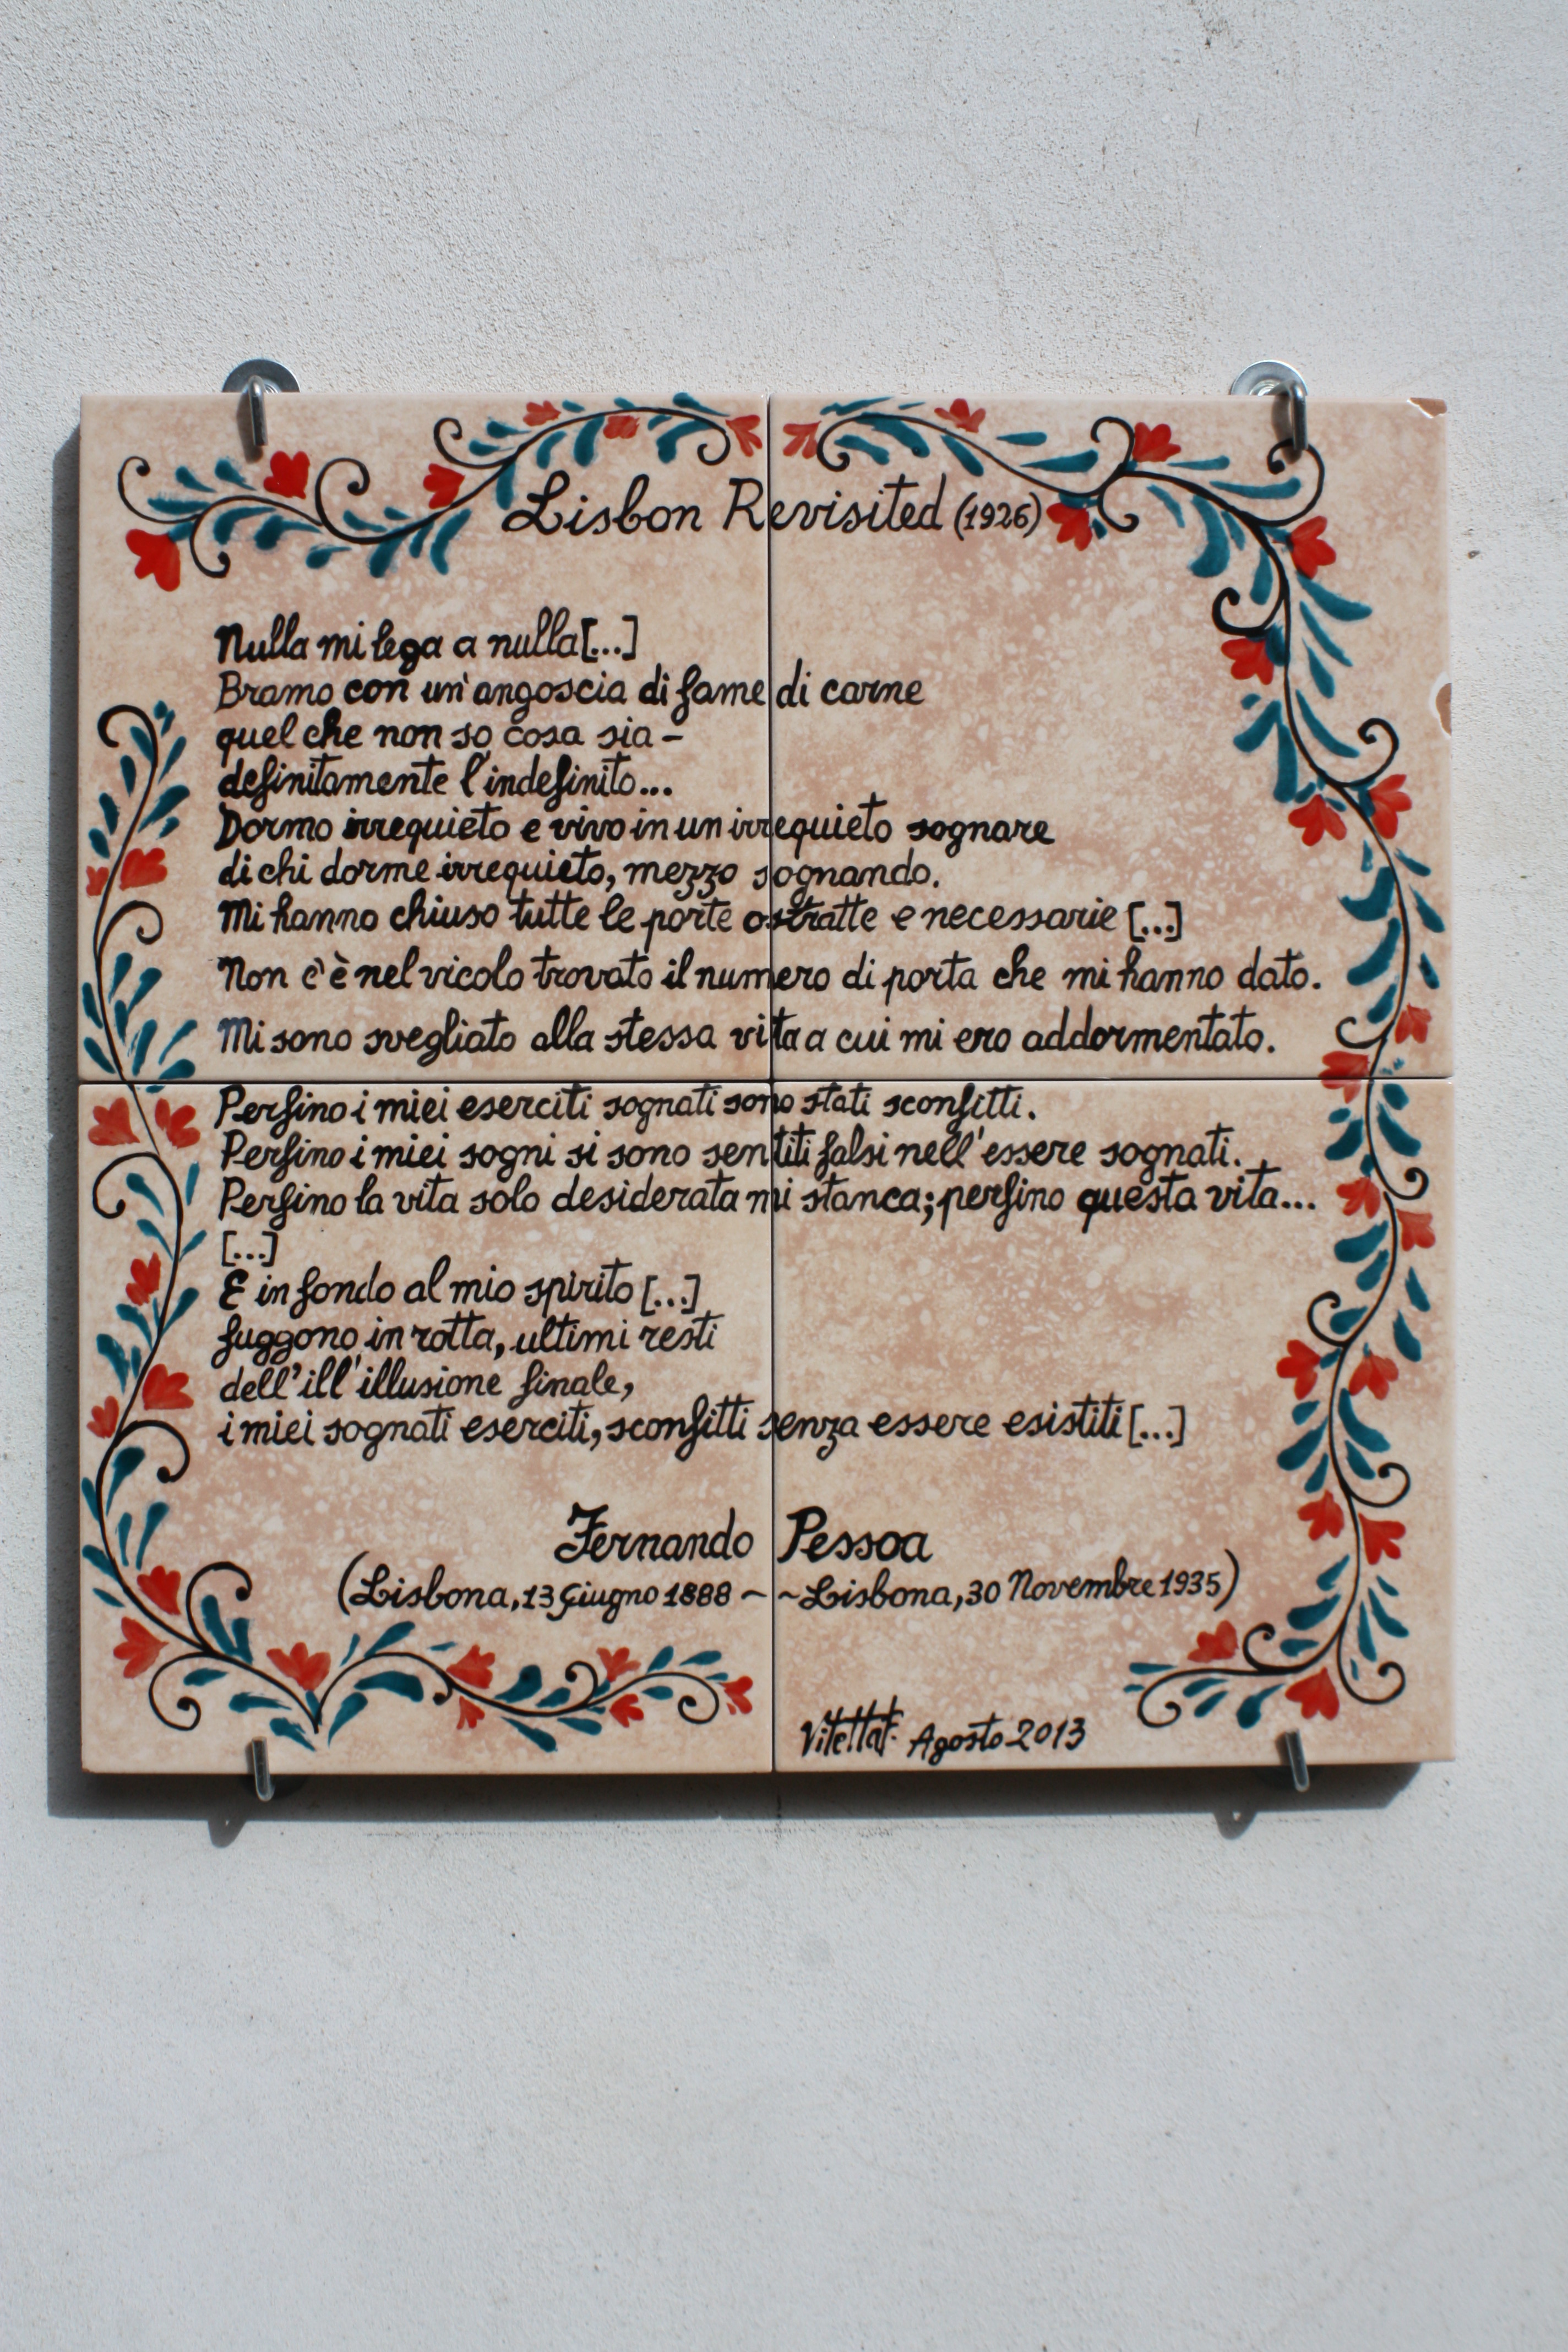 Lisbon Revisited (1926)
Nulla mi lega a nulla[...]
Bramo con un'angoscia di fame di carne
quel che non so cosa sia –
definitamente l'indefinito...
Dormo irrequieto e vivo in un irrequieto sognare
di chi dorme irrequieto, mezzo sognando.
Mi hanno chiuso tutte le porte astratte e necessarie [...]
Non c'è nel vicolo trovato il numero di porta che mi hanno dato.
Mi sono svegliato alla stessa vita a cui mi ero addormentato.
Persino i miei eserciti sognati sono stati sconfitti.
Persino i miei sogni si sono sentiti falsi nell'essere sognati.
Persino la vita solo desiderata mi stanca; persino questa vita...
[...]
E in fondo al mio spirito [...]
fuggono in rotta, ultimi resti
dell'ill'illusione finale,
i miei sognati eserciti, sconfitti senza essere esistiti [...]
Fernando Pessoa
(Lisbona, 13 Giugno 1888 ~ ~ Lisbona, 30 Novembre 1935)
Vitetta F. Agosto 2013